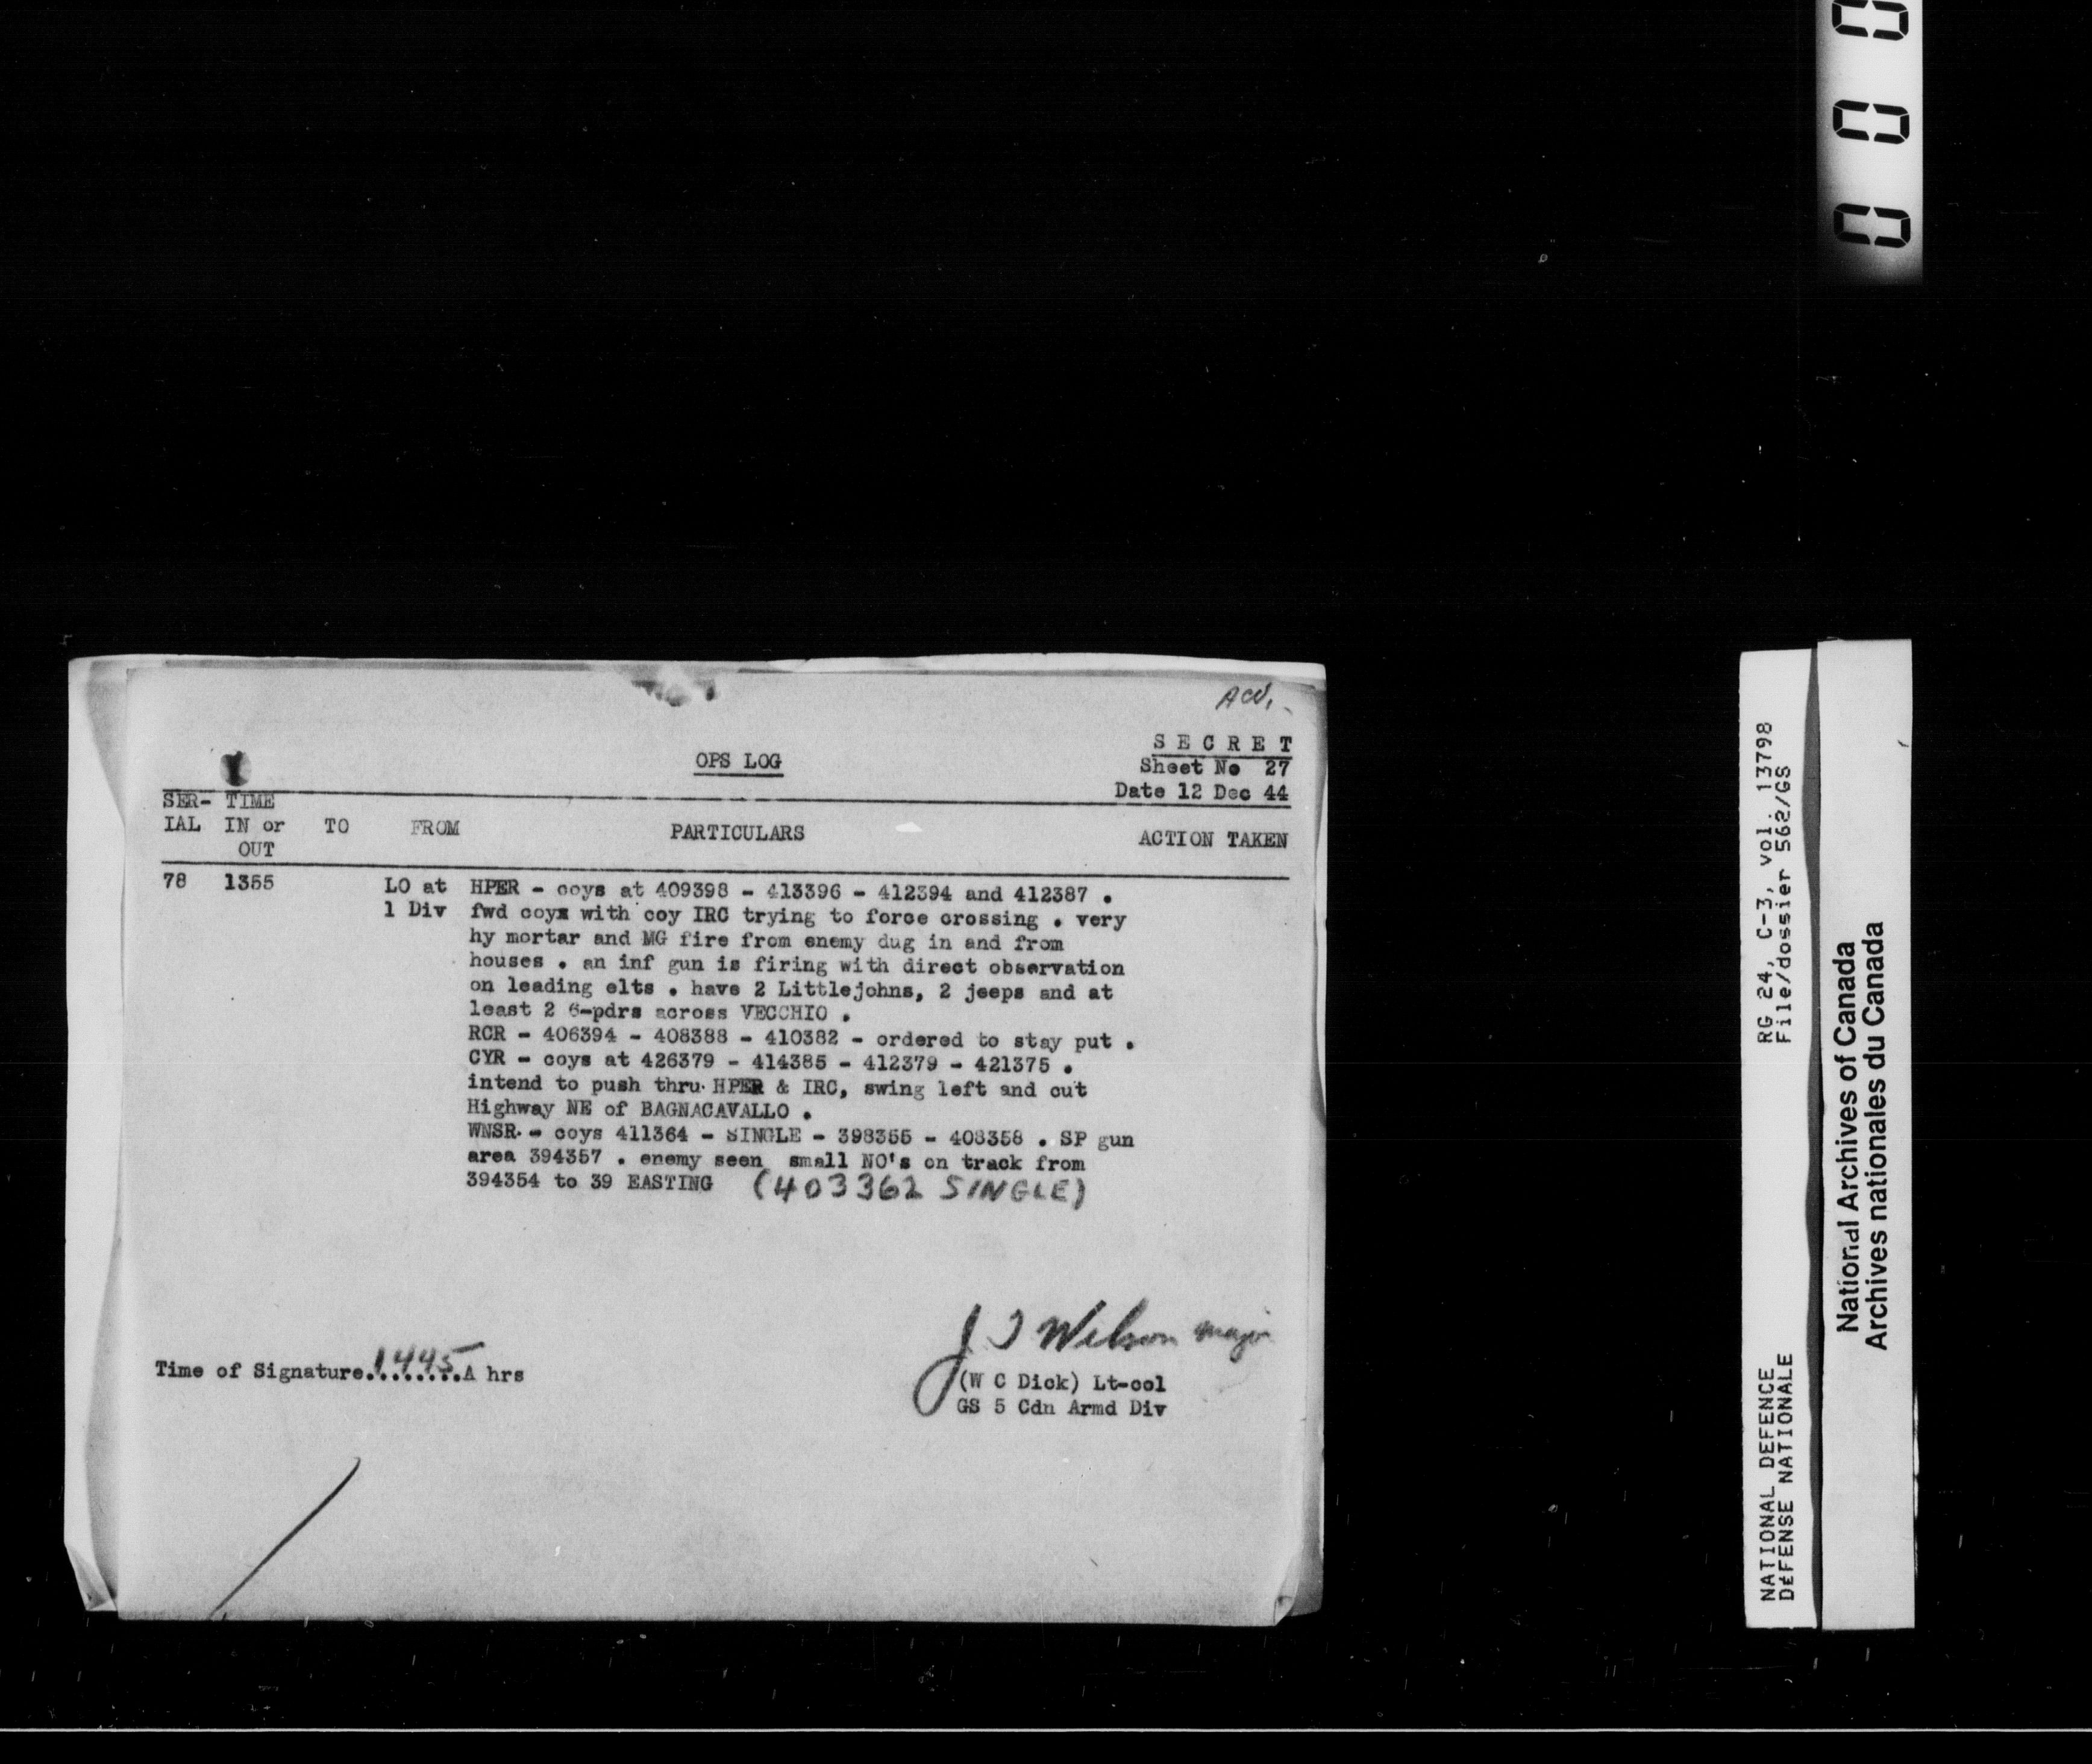 0 0 0
ACV.
SECRET
OPS LOG
Sheet No 27
Date 12 Dec 44
SER- TIME
IAL IN or TO FROM PARTICULARS ACTION TAKEN
OUT
78 1355 LO at HPER - coys at 409398 - 413396 - 412394 and 412387 .
1 Div fwd coyx with coy IRC trying to force crossing . very
hy mortar and MG fire from enemy dug in and from
houses . an inf gun is firing with direct observation
on leading elts . have 2 Littlejohns, 2 jeeps and at
least 2 6-pdrs across VECCHIO .
RCR - 406394 - 408388 - 410382 - ordered to stay put .
CYR - coys at 426379 - 414385 - 412379 - 421375 .
intend to push thru HPER & IRC, swing left and cut
Highway NE of BAGNACAVALLO .
WNSR - coys 411364 - SINGLE - 398355 - 408358 . SP gun
area 394357 . enemy seen small NO's on track from
394354 to 39 EASTING (403362 SINGLE)
J T Wilson major
Time of Signature.1445.A hrs
(W C Dick) Lt-col
GS 5 Cdn Armd Div
NATIONAL DEFENCE RG 24, C-3, vol. 13798
DéFENSE NATIONALE File/dossier 562/GS
National Archives of Canada
Archives nationales du Canada